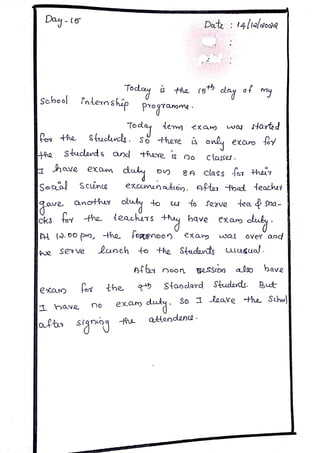 Day-15
Date : 14/12/2022
:
:
Today is the 15th day of my
School internship programme.
Today term exam was started
for the students. So there is only exam for
the students and there is no classes.
I have exam duty on 8A class for their
Social Science examination. After that teacher
gave another duty to us to serve tea & sna-
cks for the teachers they have exam duty.
At 12.00 pm, the forenoon exam was over and
we serve lunch to the students unusual.
After noon session also have
exam for the 9th Standard Students. But
I have no exam duty. So I leave the School
after signing the attendence.